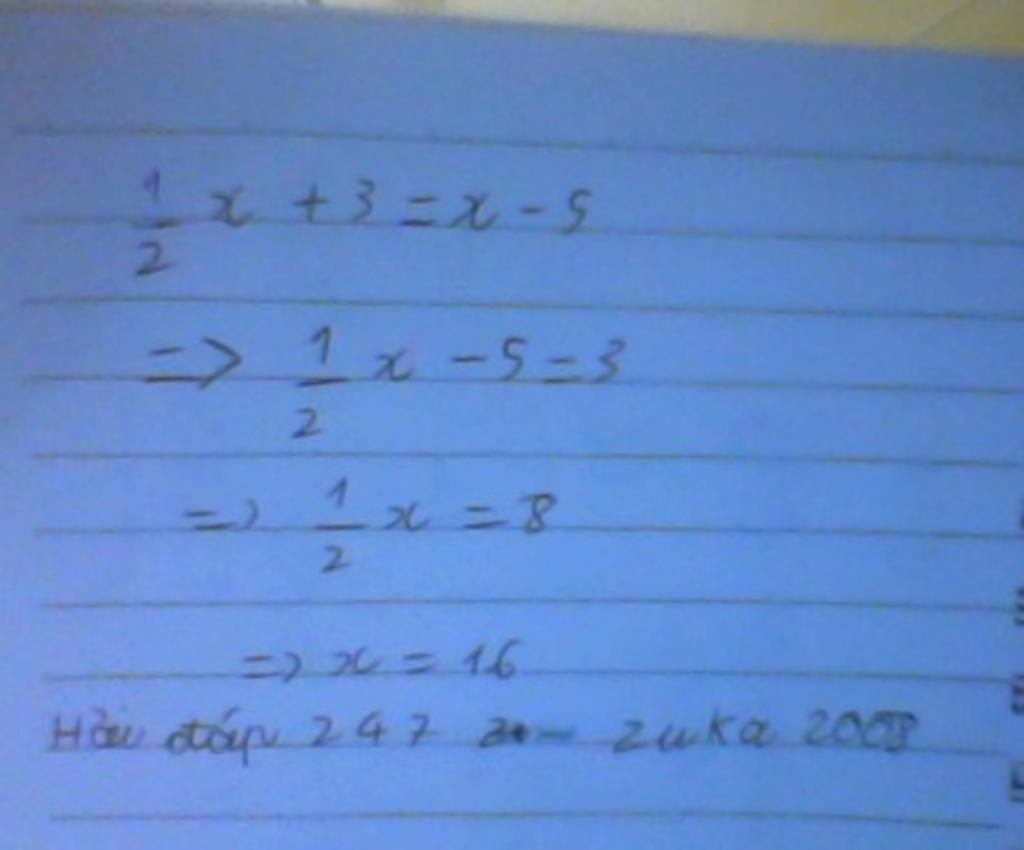 1/2 x + 3 = x - 5
=> 1/2 x - 5 = 3
=> 1/2 x = 8
=> x = 16
Hỏi đáp 247 - zuka 2008